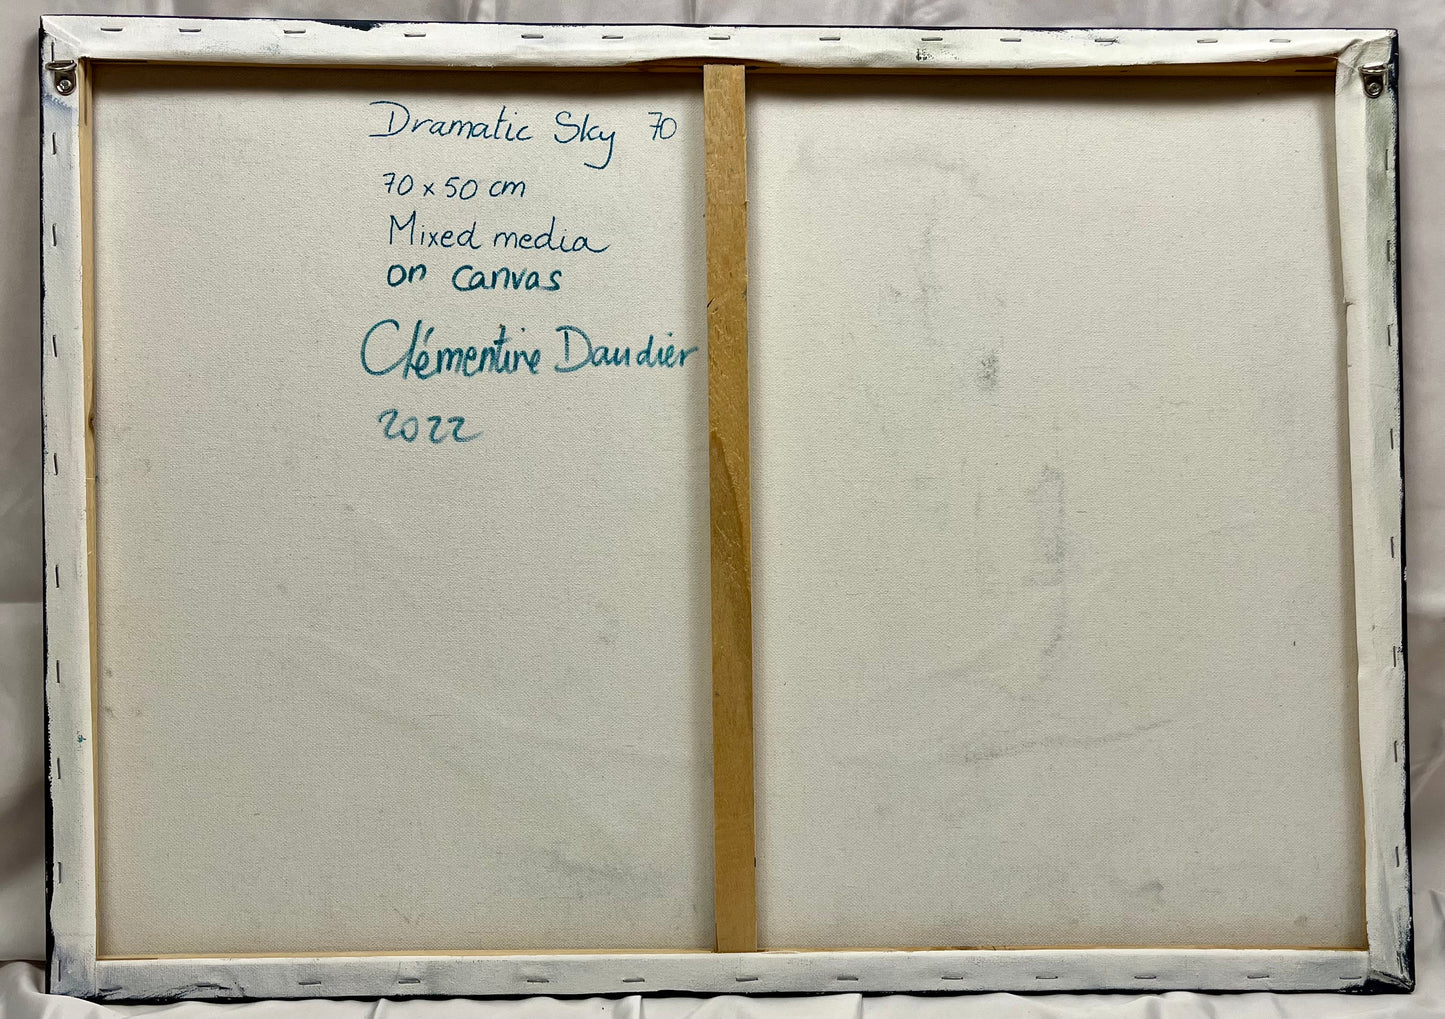 Dramatic Sky 70
70 x 50 cm
Mixed media
on canvas
Clémentine Daudier
2022